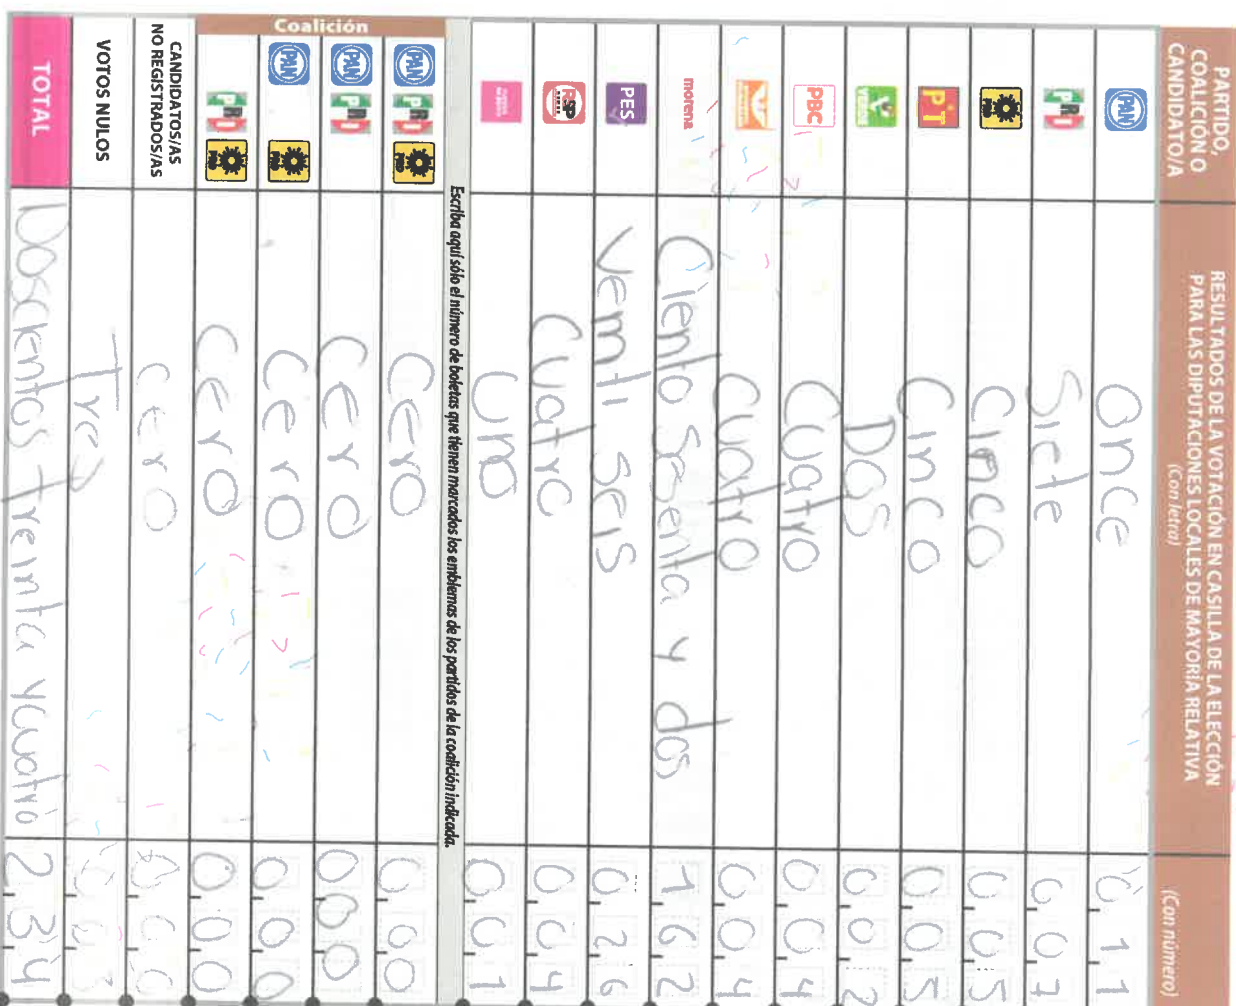 PARTIDO, COALICIÓN O CANDIDATO/A
RESULTADOS DE LA VOTACIÓN EN CASILLA DE LA ELECCIÓN PARA LAS DIPUTACIONES LOCALES DE MAYORÍA RELATIVA
(Con letra)
(Con número)
PAN once 011
PRI Siete 007
PRD Cinco 005
PT Cinco 005
VERDE Dos 002
PBC Cuatro 004
Cuatro 004
morena Ciento Sesenta y dos 162
PES Veinti seis 026
RSP Cuatro 004
Uno 001
Escriba aquí sólo el número de boletas que tienen marcados los emblemas de los partidos de la coalición indicada.
Coalición
PAN PRI PRD Cero 000
PAN PRI Cero 000
PAN PRD Cero 000
PRI PRD Cero 000
CANDIDATOS/AS NO REGISTRADOS/AS Cero 000
VOTOS NULOS Tres 003
TOTAL Doscientos treinta y cuatro 234